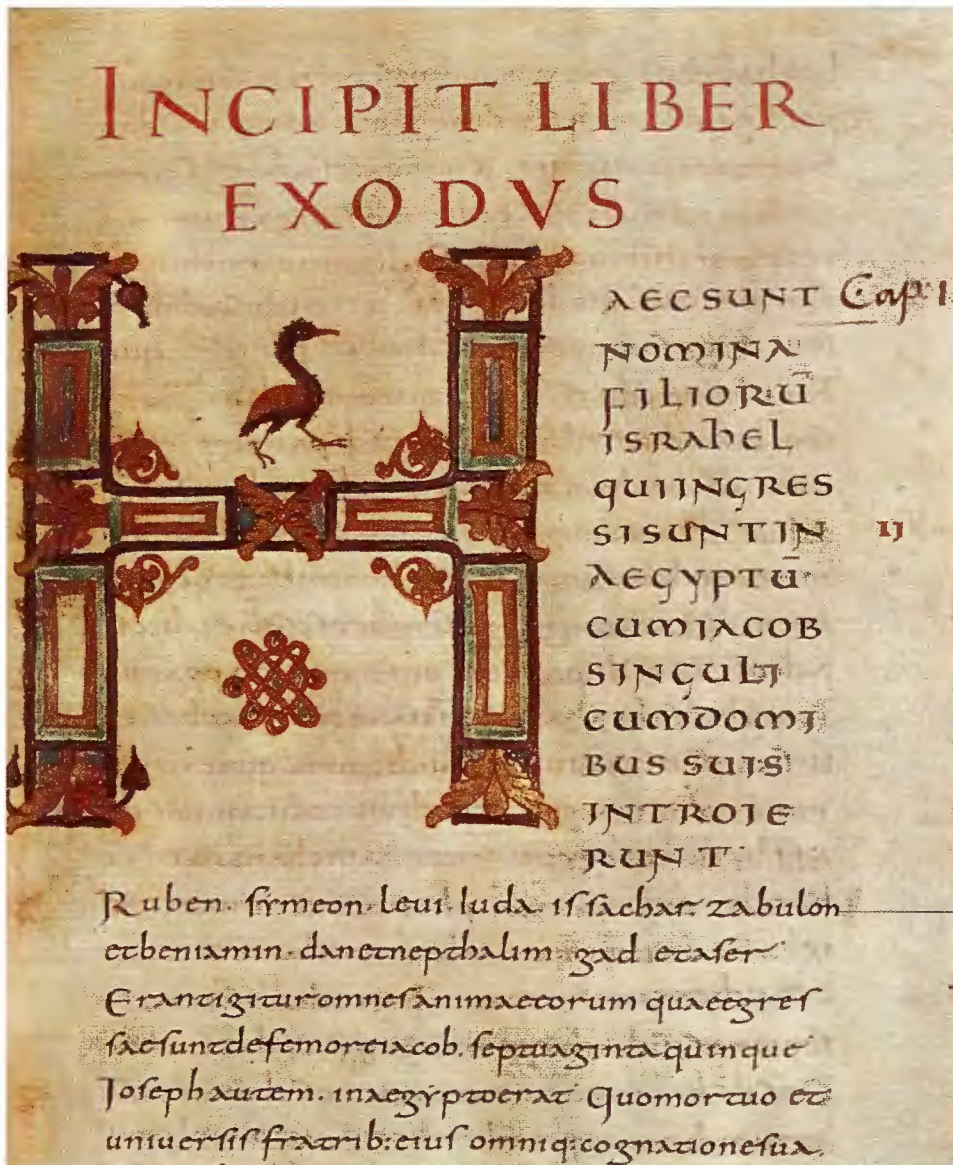 INCIPIT LIBER
EXODVS
HAEC SUNT Cap. I
NOMINA
FILIORŪ
ISRAhEL
QUIINGRES
SISUNTIN IJ
AEGYPTŪ
CUMIACOB
SINGULI
CUMDOMI
BUS SUIS
INTROIE
RUNT
Ruben. symeon. leui. iuda. issachar. zabulon
etbeniamin. danetnepthalim gad etaser
Erantigituromnesanimaeeorum quaeegres
saesuntdefemoreiacob. septuaginta quinque
Ioseph autem. inaegyptoerat Quomortuo et
uniuersis fratrib:eius omniq:cognationesua.